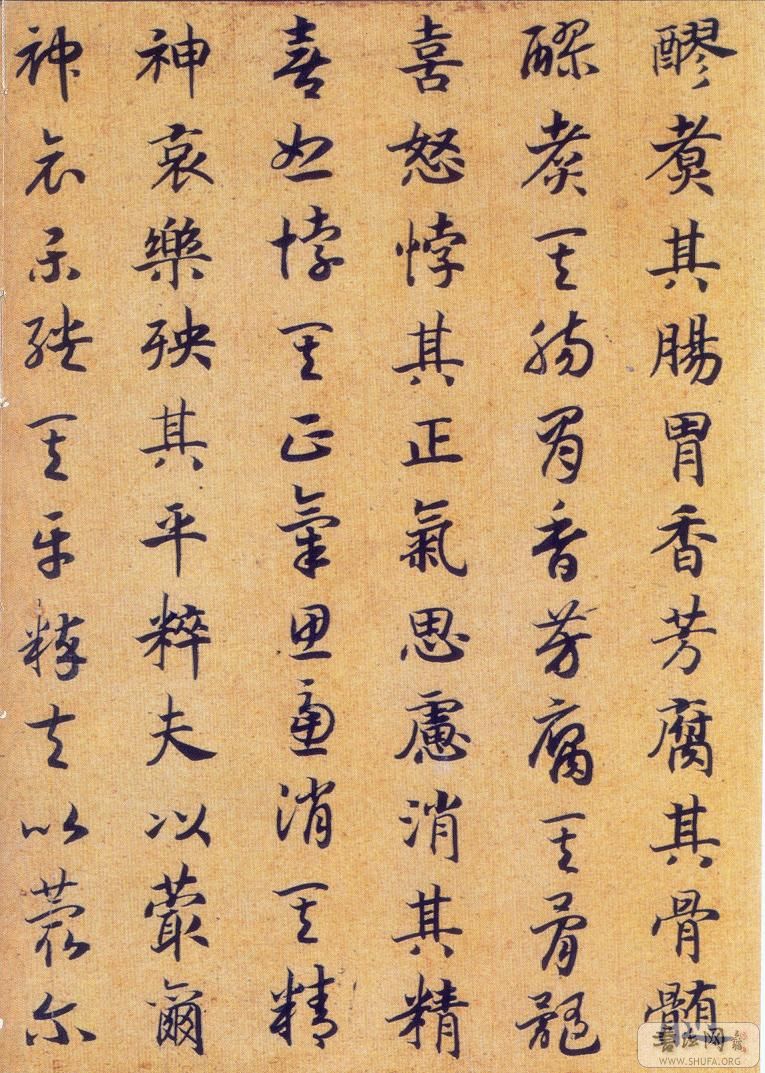 醪煑其腸胃香芳腐其骨髓
醪煑其腸胃香芳腐其骨髓
喜怒悖其正氣思慮消其精
喜怒悖其正氣思慮消其精
神哀樂殃其平粹夫以蕞爾
神哀樂殃其平粹夫以蕞尔
書法网
WWW.SHUFA.ORG